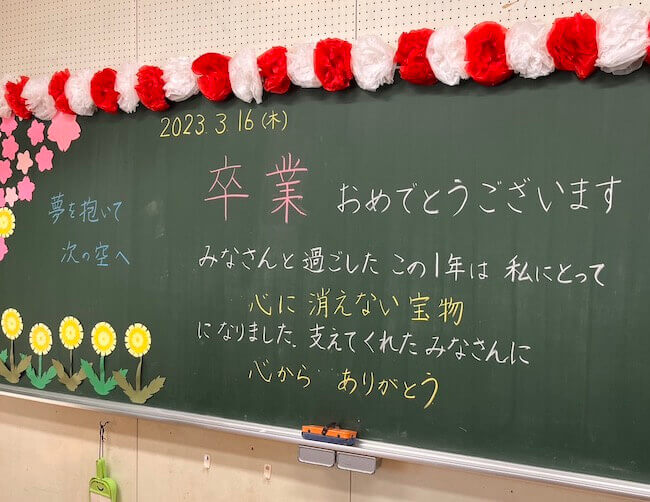 2023.3.16(木)
卒業 おめでとうございます
夢を抱いて
次の空へ
みなさんと過ごした この1年は 私にとって
心に 消えない宝物
になりました。支えてくれたみなさんに
心から ありがとう